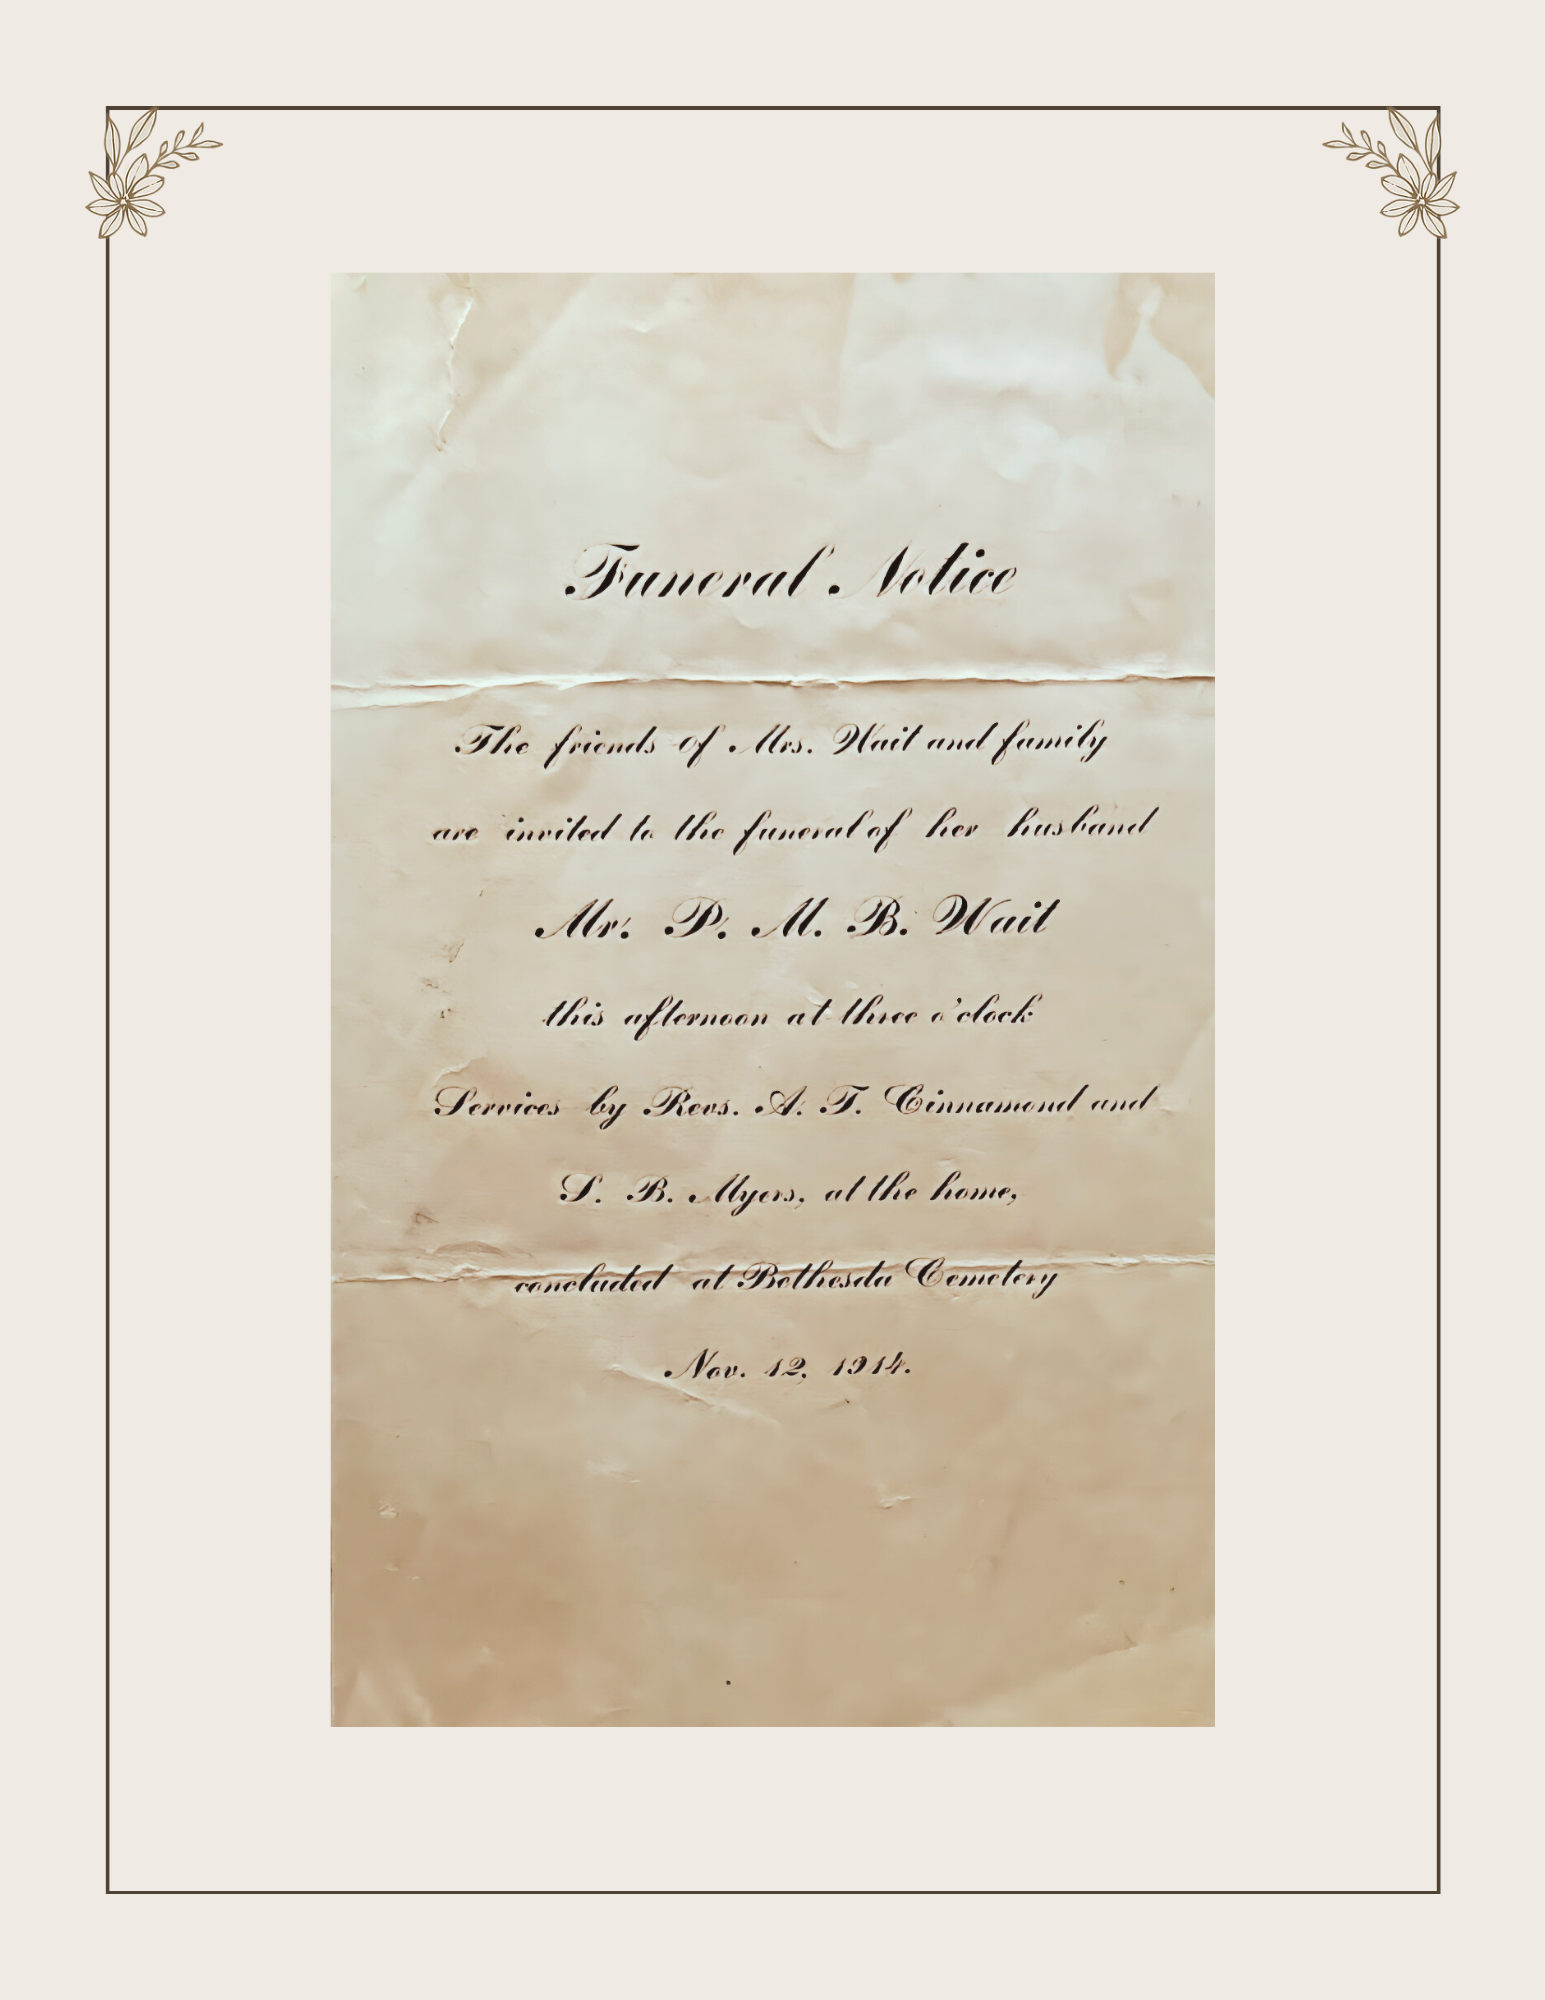 Funeral Notice
The friends of Mrs. Wait and family
are invited to the funeral of her husband
Mr. P. M. B. Wait
this afternoon at three o'clock
Services by Revs. A. T. Cinnamond and
S. B. Myers, at the home,
concluded at Bethesda Cemetery
Nov. 12, 1914.